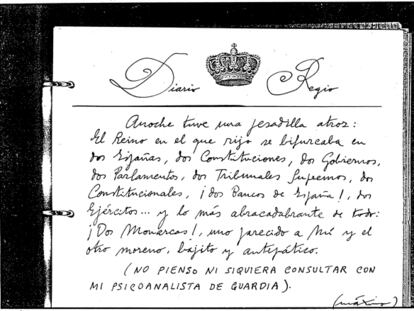 Diario Regio
Anoche tuve una pesadilla atroz:
El Reino en el que rijo se bifurcaba en
dos Españas, dos Constituciones, dos Gobiernos,
dos Parlamentos, dos Tribunales Supremos, dos
Constitucionales, ¡dos Bancos de España!, dos
Ejércitos... y lo más abracadabrante de todo:
¡Dos Monarcas!, uno parecido a Mí y el
otro moreno, bajito y antipático.
(NO PIENSO NI SIQUIERA CONSULTAR CON
MI PSICOANALISTA DE GUARDIA).
(máximo)